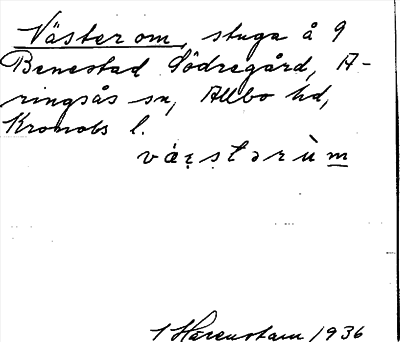 Väster om, stuga å 9
Benestad Södregård, A-
ringsås sn, Allbo hd,
Kronobs l.
vä́ʂtərùm
1 Harenstam 1936